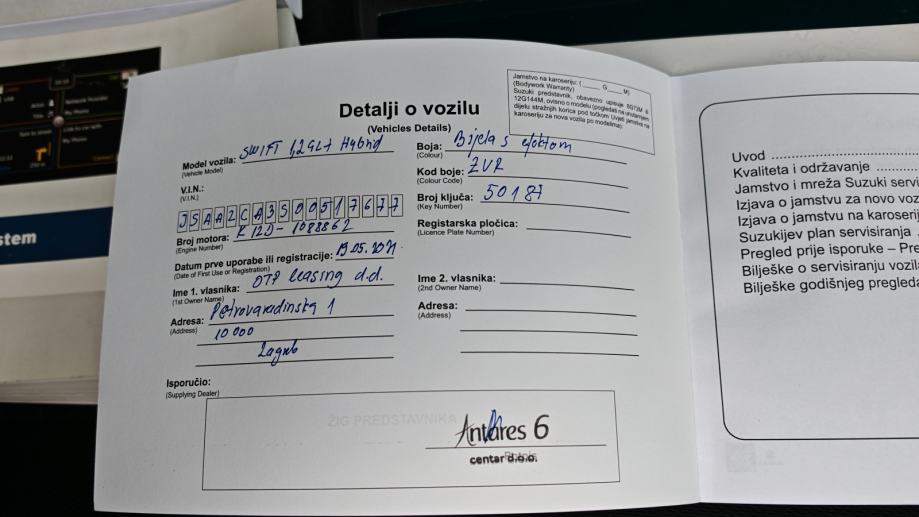 Detalji o vozilu
(Vehicles Details)
Jamstvo na karoseriju: ( ____ G____ M)
(Bodywork Warranty)
Suzuki predstavnik, obavezno upisuje 6G72M ili
12G144M, ovisno o modelu (pogledati na unutarnjem
dijelu stražnjih korica pod točkom Uvjeti jamstva na
karoseriju za nova vozila po modelima):
Model vozila: SWIFT 1,2 GL+ Hybrid
(Vehicle Model)
V.I.N.:
(V.I.N.)
JSAA2CA3500517677
Broj motora: K12D-1088862
(Engine Number)
Datum prve uporabe ili registracije: 19.05.2021
(Date of First Use or Registration)
Ime 1. vlasnika: OTP Leasing d.d.
(1st Owner Name)
Adresa: Petrovaradinska 1
(Address)
10 000
Zagreb
Boja: Bijela s efektom
(Colour)
Kod boje: ZVR
(Colour Code)
Broj ključa: 50187
(Key Number)
Registarska pločica:
(Licence Plate Number)
Ime 2. vlasnika:
(2nd Owner Name)
Adresa:
(Address)
Isporučio:
(Supplying Dealer)
ŽIG PREDSTAVNIKA
Antares 6
centar d.o.o.
Uvod
Kvaliteta i održavanje
Jamstvo i mreža Suzuki servi
Izjava o jamstvu za novo voz
Izjava o jamstvu na karoserij
Suzukijev plan servisiranja
Pregled prije isporuke – Pre
Bilješke o servisiranju vozila
Bilješke godišnjeg pregleda
stem